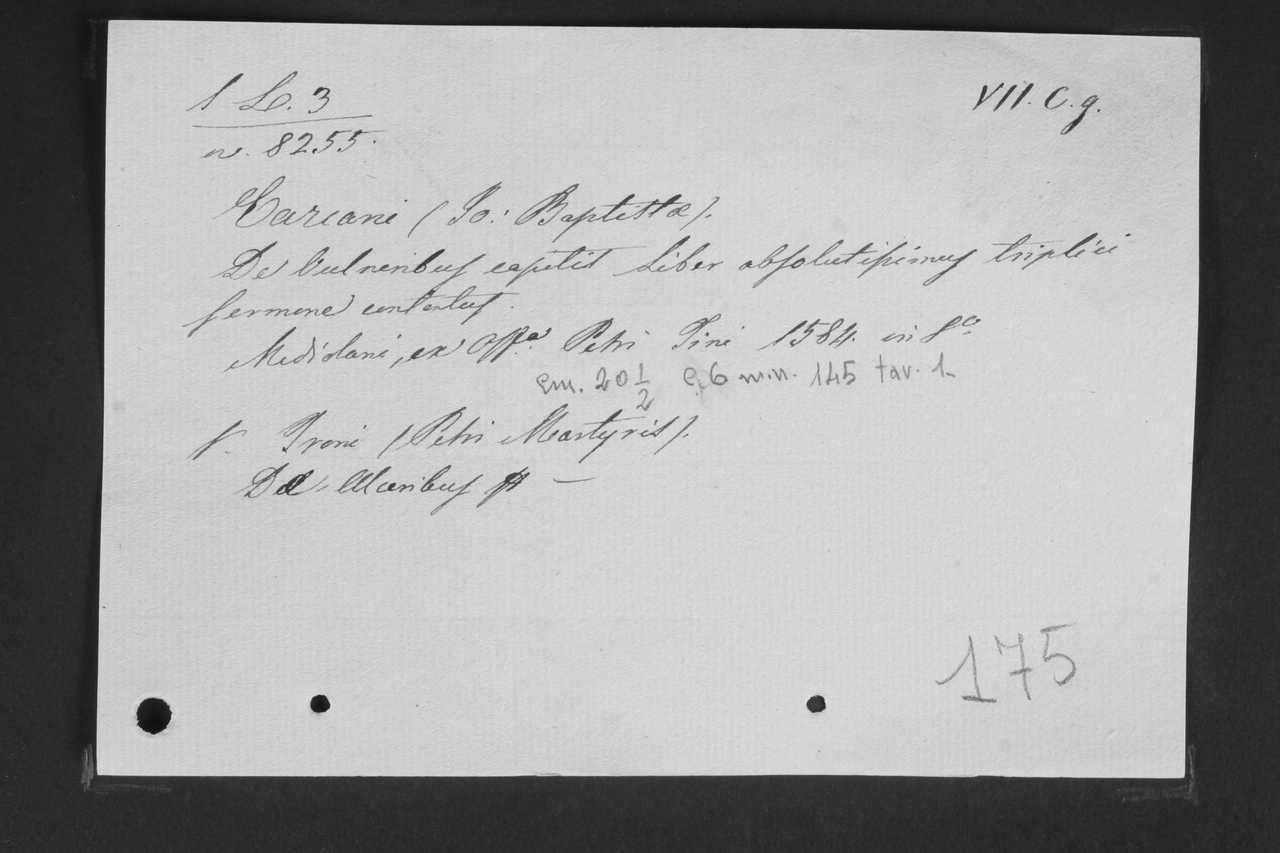 1 L. 3
n. 8255.
VII. C. g.
Carcani (Jo: Baptistæ).
De Vulneribus capitis Liber absolutissimus triplici
sermone contentus.
Mediolani, ex Offa. Petri Tini 1584. in 8º
cm. 20 1/2 C. 6 n.n. 145 tav. 1
V. Troni (Petri Martyris).
De Ulceribus &c —
175